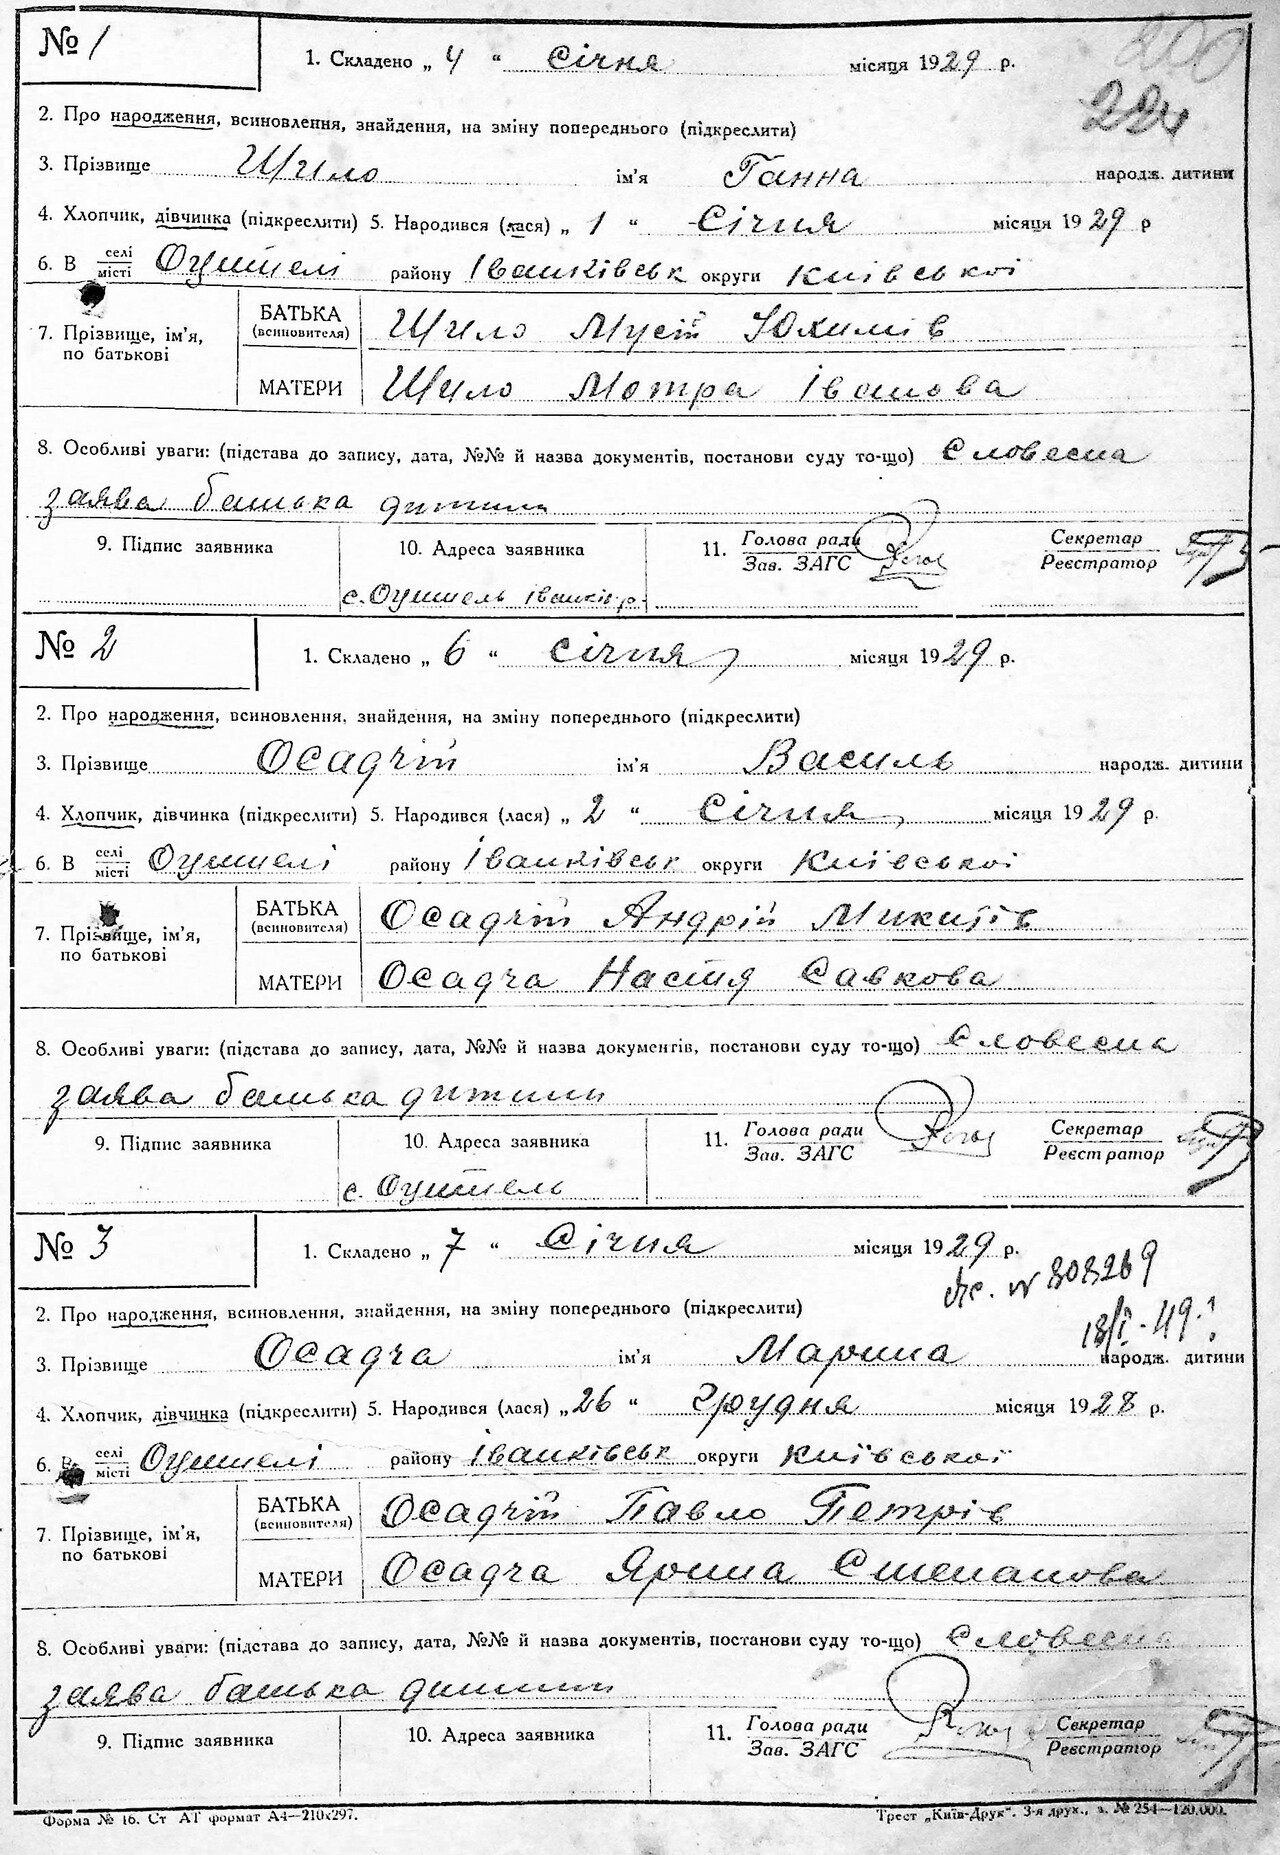 200
224
№ 1
1. Складено „ 4 “ Січня місяця 1929 р.
2. Про народження, всиновлення, знайдення, на зміну попереднього (підкреслити)
3. Прізвище Шило ім'я Ганна народж. дитини
4. Хлопчик, дівчинка (підкреслити) 5. Народився (лася) „ 1 “ Січня місяця 1929 р
6. В селі/місті Оцителі району Іванківськ округи Київської
7. Прізвище, ім'я, по батькові
БАТЬКА (всиновителя) Шило Мусій Юхимів
МАТЕРИ Шило Мотра Іванова
8. Особливі уваги: (підстава до запису, дата, №№ й назва документів, постанови суду то-що) Словесна
заява батька дитини
9. Підпис заявника 10. Адреса заявника 11. Голова ради/Зав. ЗАГС Секретар/Реєстратор
с. Оцитель Іванків. р.
№ 2
1. Складено „ 6 “ Січня місяця 1929 р.
2. Про народження, всиновлення, знайдення, на зміну попереднього (підкреслити)
3. Прізвище Осадчій ім'я Василь народж. дитини
4. Хлопчик, дівчинка (підкреслити) 5. Народився (лася) „ 2 “ Січня місяця 1929 р.
6. В селі/місті Оцителі району Іванківськ округи Київської
7. Прізвище, ім'я, по батькові
БАТЬКА (всиновителя) Осадчій Андрій Микитів
МАТЕРИ Осадча Настя Савкова
8. Особливі уваги: (підстава до запису, дата, №№ й назва документів, постанови суду то-що) Словесна
заява батька дитини
9. Підпис заявника 10. Адреса заявника 11. Голова ради/Зав. ЗАГС Секретар/Реєстратор
с. Оцитель
№ 3
1. Складено „ 7 “ Січня місяця 1929 р.
303269
2. Про народження, всиновлення, знайдення, на зміну попереднього (підкреслити)
18/I-49 г.
3. Прізвище Осадча ім'я Марина народж. дитини
4. Хлопчик, дівчинка (підкреслити) 5. Народився (лася) „ 26 “ Грудня місяця 1928 р.
6. В селі/місті Оцителі району Іванківськ округи Київської
7. Прізвище, ім'я, по батькові
БАТЬКА (всиновителя) Осадчій Павло Петрів
МАТЕРИ Осадча Ярина Степанова
8. Особливі уваги: (підстава до запису, дата, №№ й назва документів, постанови суду то-що) Словесна
заява батька дитини
9. Підпис заявника 10. Адреса заявника 11. Голова ради/Зав. ЗАГС Секретар/Реєстратор
Форма № 16. Ст АТ формат А4—210х297.
Трест „Київ-Друк“. 3-я друк., з. № 254—120.000.